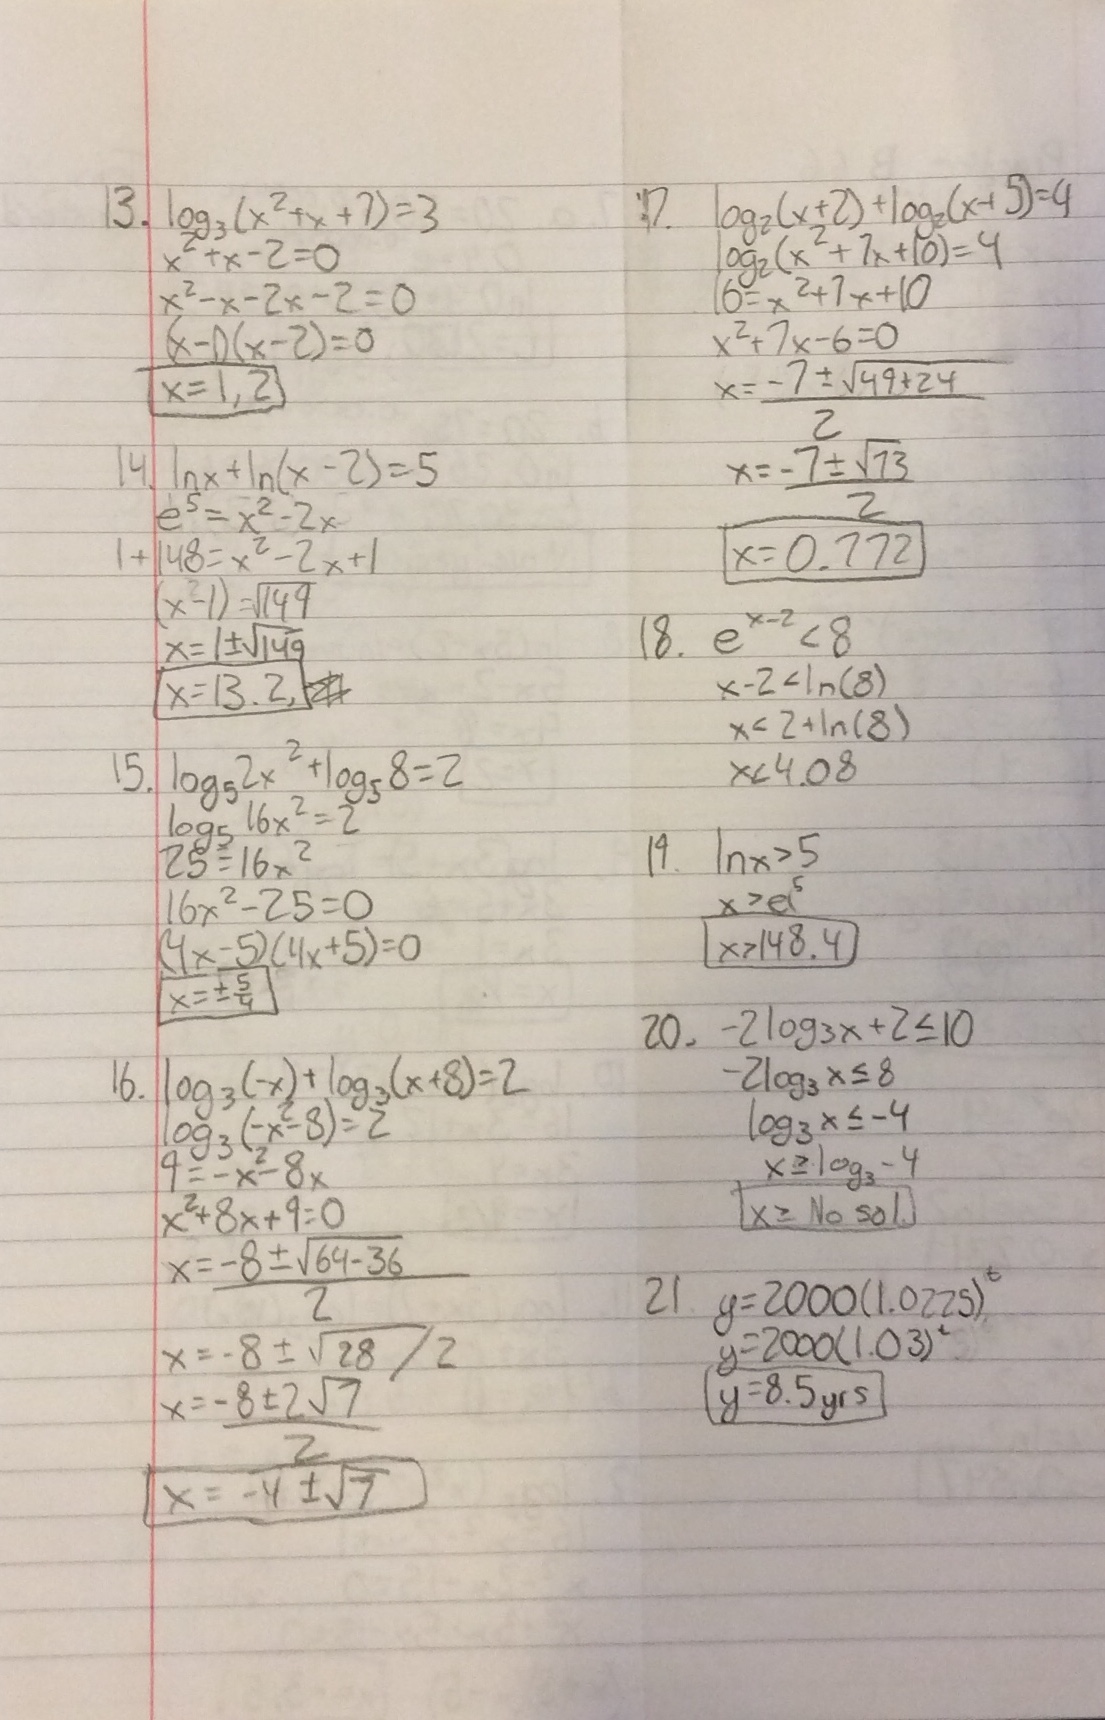 13. log₃(x²+x+7)=3
x²+x-2=0
x²-x-2x-2=0
(x-1)(x-2)=0
x=1,2
14. lnx+ln(x-2)=5
e⁵=x²-2x
1+148=x²-2x+1
(x²-1)=√149
x=1±√149
x=13.2,
15. log₅2x²+log₅8=2
log₅16x²=2
25=16x²
16x²-25=0
(4x-5)(4x+5)=0
x=±5/4
16. log₃(-x)+log₃(x+8)=2
log₃(-x²-8)=2
9=-x²-8x
x²+8x+9=0
x=-8±√64-36
2
x=-8±√28/2
x=-8±2√7
2
x=-4±√7
17. log₂(x+2)+log₂(x+5)=4
log₂(x²+7x+10)=4
16=x²+7x+10
x²+7x-6=0
x=-7±√49+24
2
x=-7±√73
2
x=0.772
18. e^(x-2)<8
x-2<ln(8)
x<2+ln(8)
x<4.08
19. lnx>5
x>e⁵
x>148.4
20. -2log₃x+2≤10
-2log₃x≤8
log₃x≤-4
x≥log₃-4
x≥ No sol.
21. y=2000(1.0225)ᵗ
y=2000(1.03)ᵗ
y=8.5yrs